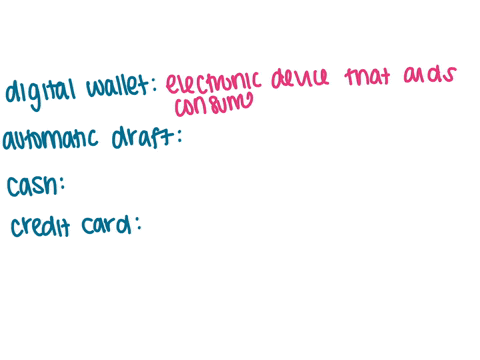 digital wallet: electronic device that aids
consum
automatic draft:
cash:
credit card: